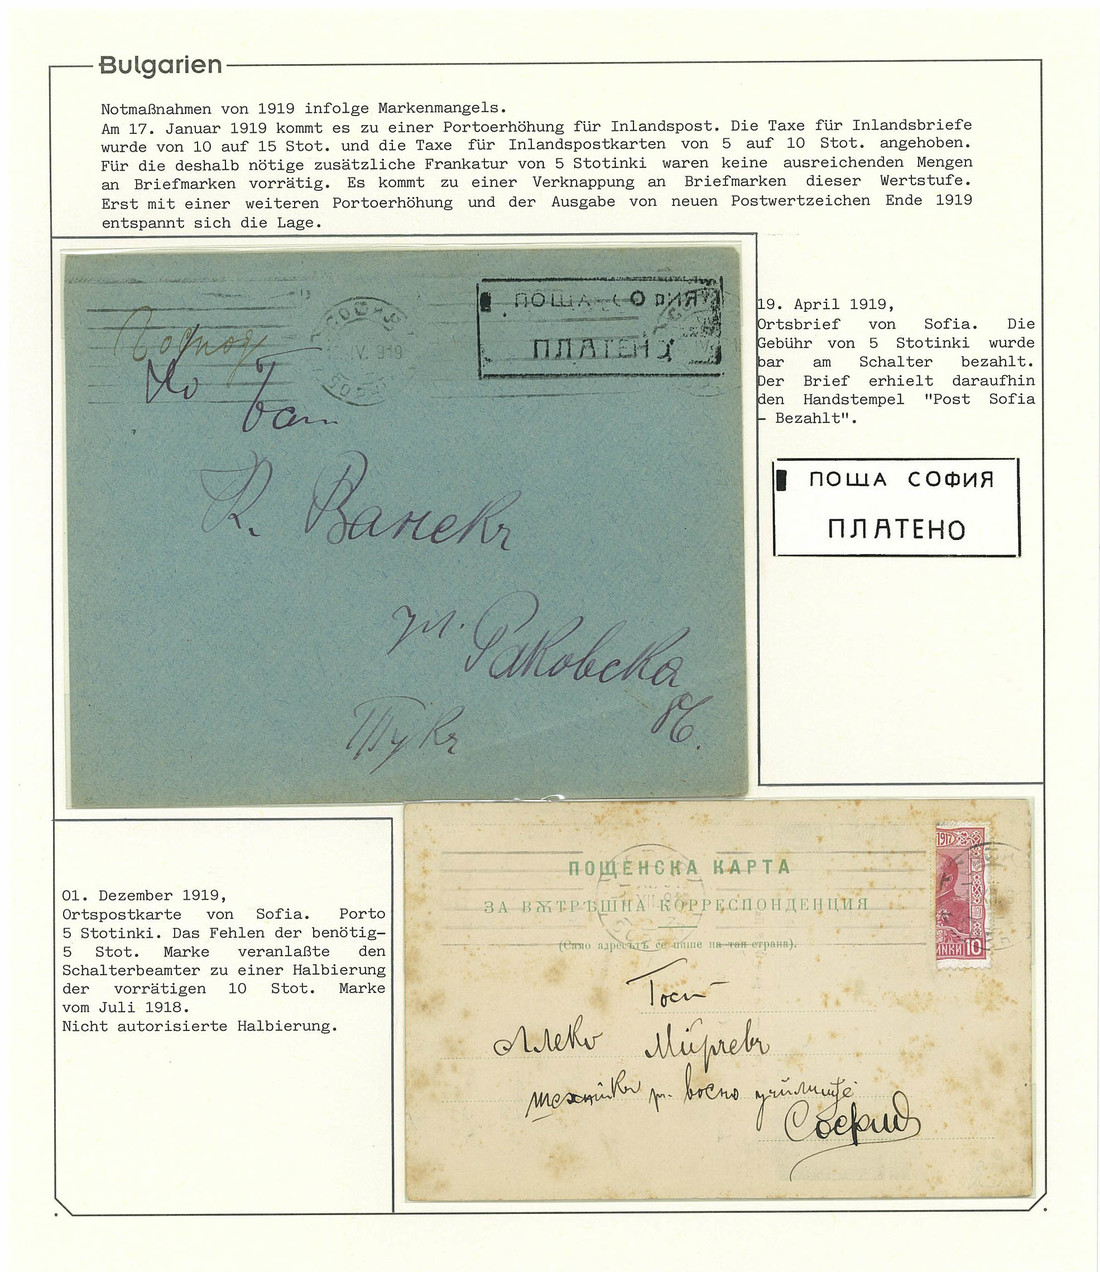 Bulgarien
Notmaßnahmen von 1919 infolge Markenmangels.
Am 17. Januar 1919 kommt es zu einer Portoerhöhung für Inlandspost. Die Taxe für Inlandsbriefe
wurde von 10 auf 15 Stot. und die Taxe für Inlandspostkarten von 5 auf 10 Stot. angehoben.
Für die deshalb nötige zusätzliche Frankatur von 5 Stotinki waren keine ausreichenden Mengen
an Briefmarken vorrätig. Es kommt zu einer Verknappung an Briefmarken dieser Wertstufe.
Erst mit einer weiteren Portoerhöhung und der Ausgabe von neuen Postwertzeichen Ende 1919
entspannt sich die Lage.
ПОЩА СОФИЯ
ПЛАТЕНО
СОФИЯ
IV. 919
Господ
Г-нъ
К. Ванекъ
ул. Раковска
Тукъ
19. April 1919,
Ortsbrief von Sofia. Die
Gebühr von 5 Stotinki wurde
bar am Schalter bezahlt.
Der Brief erhielt daraufhin
den Handstempel "Post Sofia
- Bezahlt".
ПОЩА СОФИЯ
ПЛАТЕНО
01. Dezember 1919,
Ortspostkarte von Sofia. Porto
5 Stotinki. Das Fehlen der benötig-
5 Stot. Marke veranlaßte den
Schalterbeamter zu einer Halbierung
der vorrätigen 10 Stot. Marke
vom Juli 1918.
Nicht autorisierte Halbierung.
ПОЩЕНСКА КАРТА
ЗА ВѪТРѢШНА КОРРЕСПОНДЕНЦИЯ
(Само адресътъ се пише на тая страна).
1917
ИНКИ 10
Алеко
София